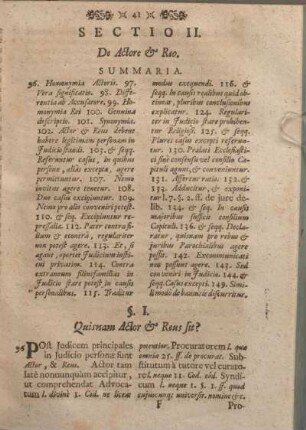 41
SECTIO II.
De Actore & Reo.
SUMMARIA.
96. Homonymia Actoris. 97.
Vera significatio. 98. Diffe-
rentia ab Accusatore. 99. Ho-
monymia Rei 100. Genuina
descriptio. 101. Synonymia.
102. Actor & Reus debent
habere legitimam personam in
Judicio standi. 103. & seqq.
Referuntur casus, in quibus
persona, alias excepta, agere
permittuntur. 107. Nemo
invitus agere tenetur. 108.
Duo casus excipiuntur. 109.
Nemo pro alio conveniri potest.
110. & seq. Excipiuntur re-
pressalia. 112. Pater contra fi-
lium & econtra, regulariter
non potest agere. 113. Er, si
agant, oportet Judicium insti-
tui privatim. 114. Contra
extraneum filiusfamilias in
Judicio stare potest in cau-
sis personalibus. 115. Traditur
modus exequendi. 116. &
seqq. In causis realibus quid ob-
tineat, pluribus conclusionibus
explicatur. 124. Regulari-
ter in Judicio stare prohiben-
tur Religiosi. 125. & seqq.
Plures casus excepti referun-
tur. 130. Praelati Ecclesiasti-
ci sine consensu vel consilio Ca-
pituli agunt, & conveniuntur.
131. Affertur ratio. 132. &
133. Adducitur, & exponi-
tur l. 7. §. 2. ff. de jure do-
lib. 134. & seq. In causis
majoribus sufficit consilium
Capituli. 136. & seqq. Decla-
ratur, quinam pro rebus &
juribus Parochialibus agere
possit. 142. Excommunicati
nea possunt agere. 143. Sed
conveniri in Judicio. 144. &
seqq. Casus excepti.
Simili-
modo de bannitis discurritur.
§. I.
Quisnam Actor & Reus sit?
96 POst Judicem principales
in Judicio personæ sunt
Actor, & Reus. Actor tam
latè nonnunquam accipitur,
ut comprehendat Advoca-
tum l. divini 5. Cod. ne liceat
potentior. Procuratorem l. qui
omnia 25. ff. de procurat. Sub-
stitutum à tutore vel curato-
re l. neque 11. Cod. eod. Syndi-
cum l. neque 1. §. 1. ff. quod
cujuscunq; universit. nomine &c.
F
Pro-